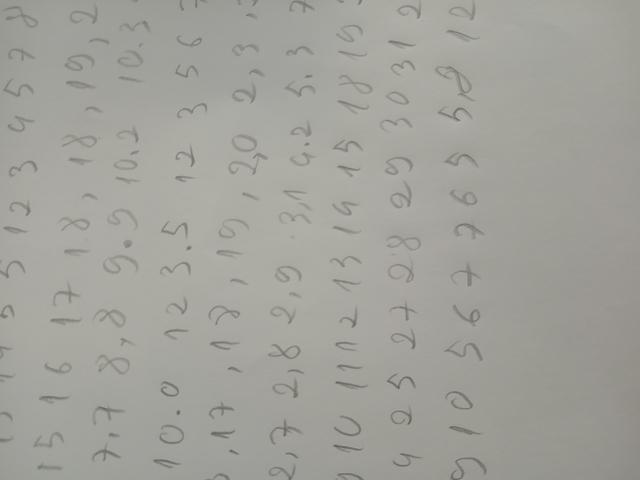 5 5 12 3 4 5 7 8
15 16 17 18, 18, 19, 2
7,7 8,8 9.9 10.2 10.3
10.0 12 3.5 12 3 5 6
, 17, 18, 19, 20 2,3,
2,7 2,8 2,9 3,1 4.2 5.3 7
10 11 12 13 14 15 18 19
4 25 27 28 29 30 31 2
9 10 5 6 7 7 6 5 5,8 12